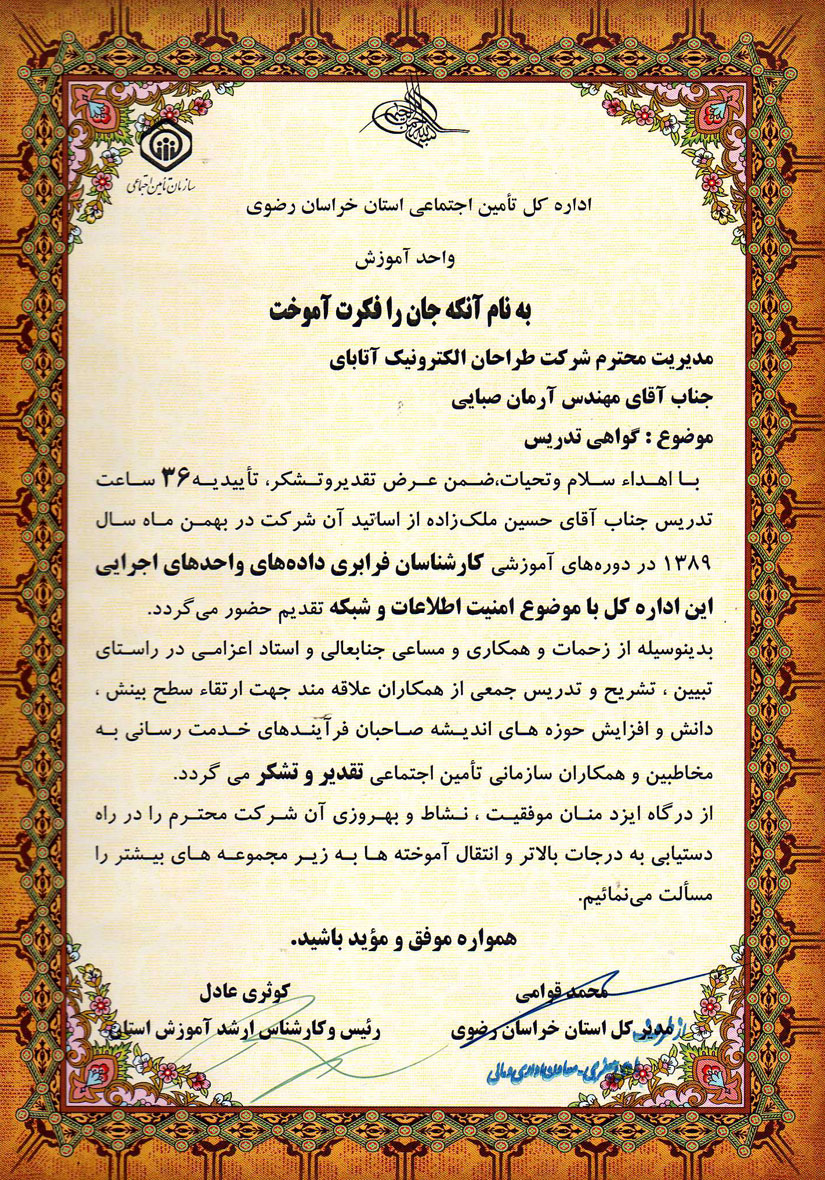 سازمان تأمین اجتماعی
اداره کل تأمین اجتماعی استان خراسان رضوی
واحد آموزش
به نام آنکه جان را فکرت آموخت
مدیریت محترم شرکت طراحان الکترونیک آتابای
جناب آقای مهندس آرمان صبایی
موضوع : گواهی تدریس
با اهداء سلام وتحیات،ضمن عرض تقدیروتشکر، تأییدیه ۳۶ ساعت
تدریس جناب آقای حسین ملک‌زاده از اساتید آن شرکت در بهمن ماه سال
۱۳۸۹ در دوره‌های آموزشی کارشناسان فرابری داده‌های واحدهای اجرایی
این اداره کل با موضوع امنیت اطلاعات و شبکه تقدیم حضور می‌گردد.
بدینوسیله از زحمات و همکاری و مساعی جنابعالی و استاد اعزامی در راستای
تبیین ، تشریح و تدریس جمعی از همکاران علاقه مند جهت ارتقاء سطح بینش ،
دانش و افزایش حوزه های اندیشه صاحبان فرآیندهای خدمت رسانی به
مخاطبین و همکاران سازمانی تأمین اجتماعی تقدیر و تشکر می گردد.
از درگاه ایزد منان موفقیت ، نشاط و بهروزی آن شرکت محترم را در راه
دستیابی به درجات بالاتر و انتقال آموخته ها به زیر مجموعه های بیشتر را
مسألت می‌نمائیم.
همواره موفق و مؤید باشید.
محمد قوامی
مدیر کل استان خراسان رضوی
کوثری عادل
رئیس وکارشناس ارشد آموزش استان